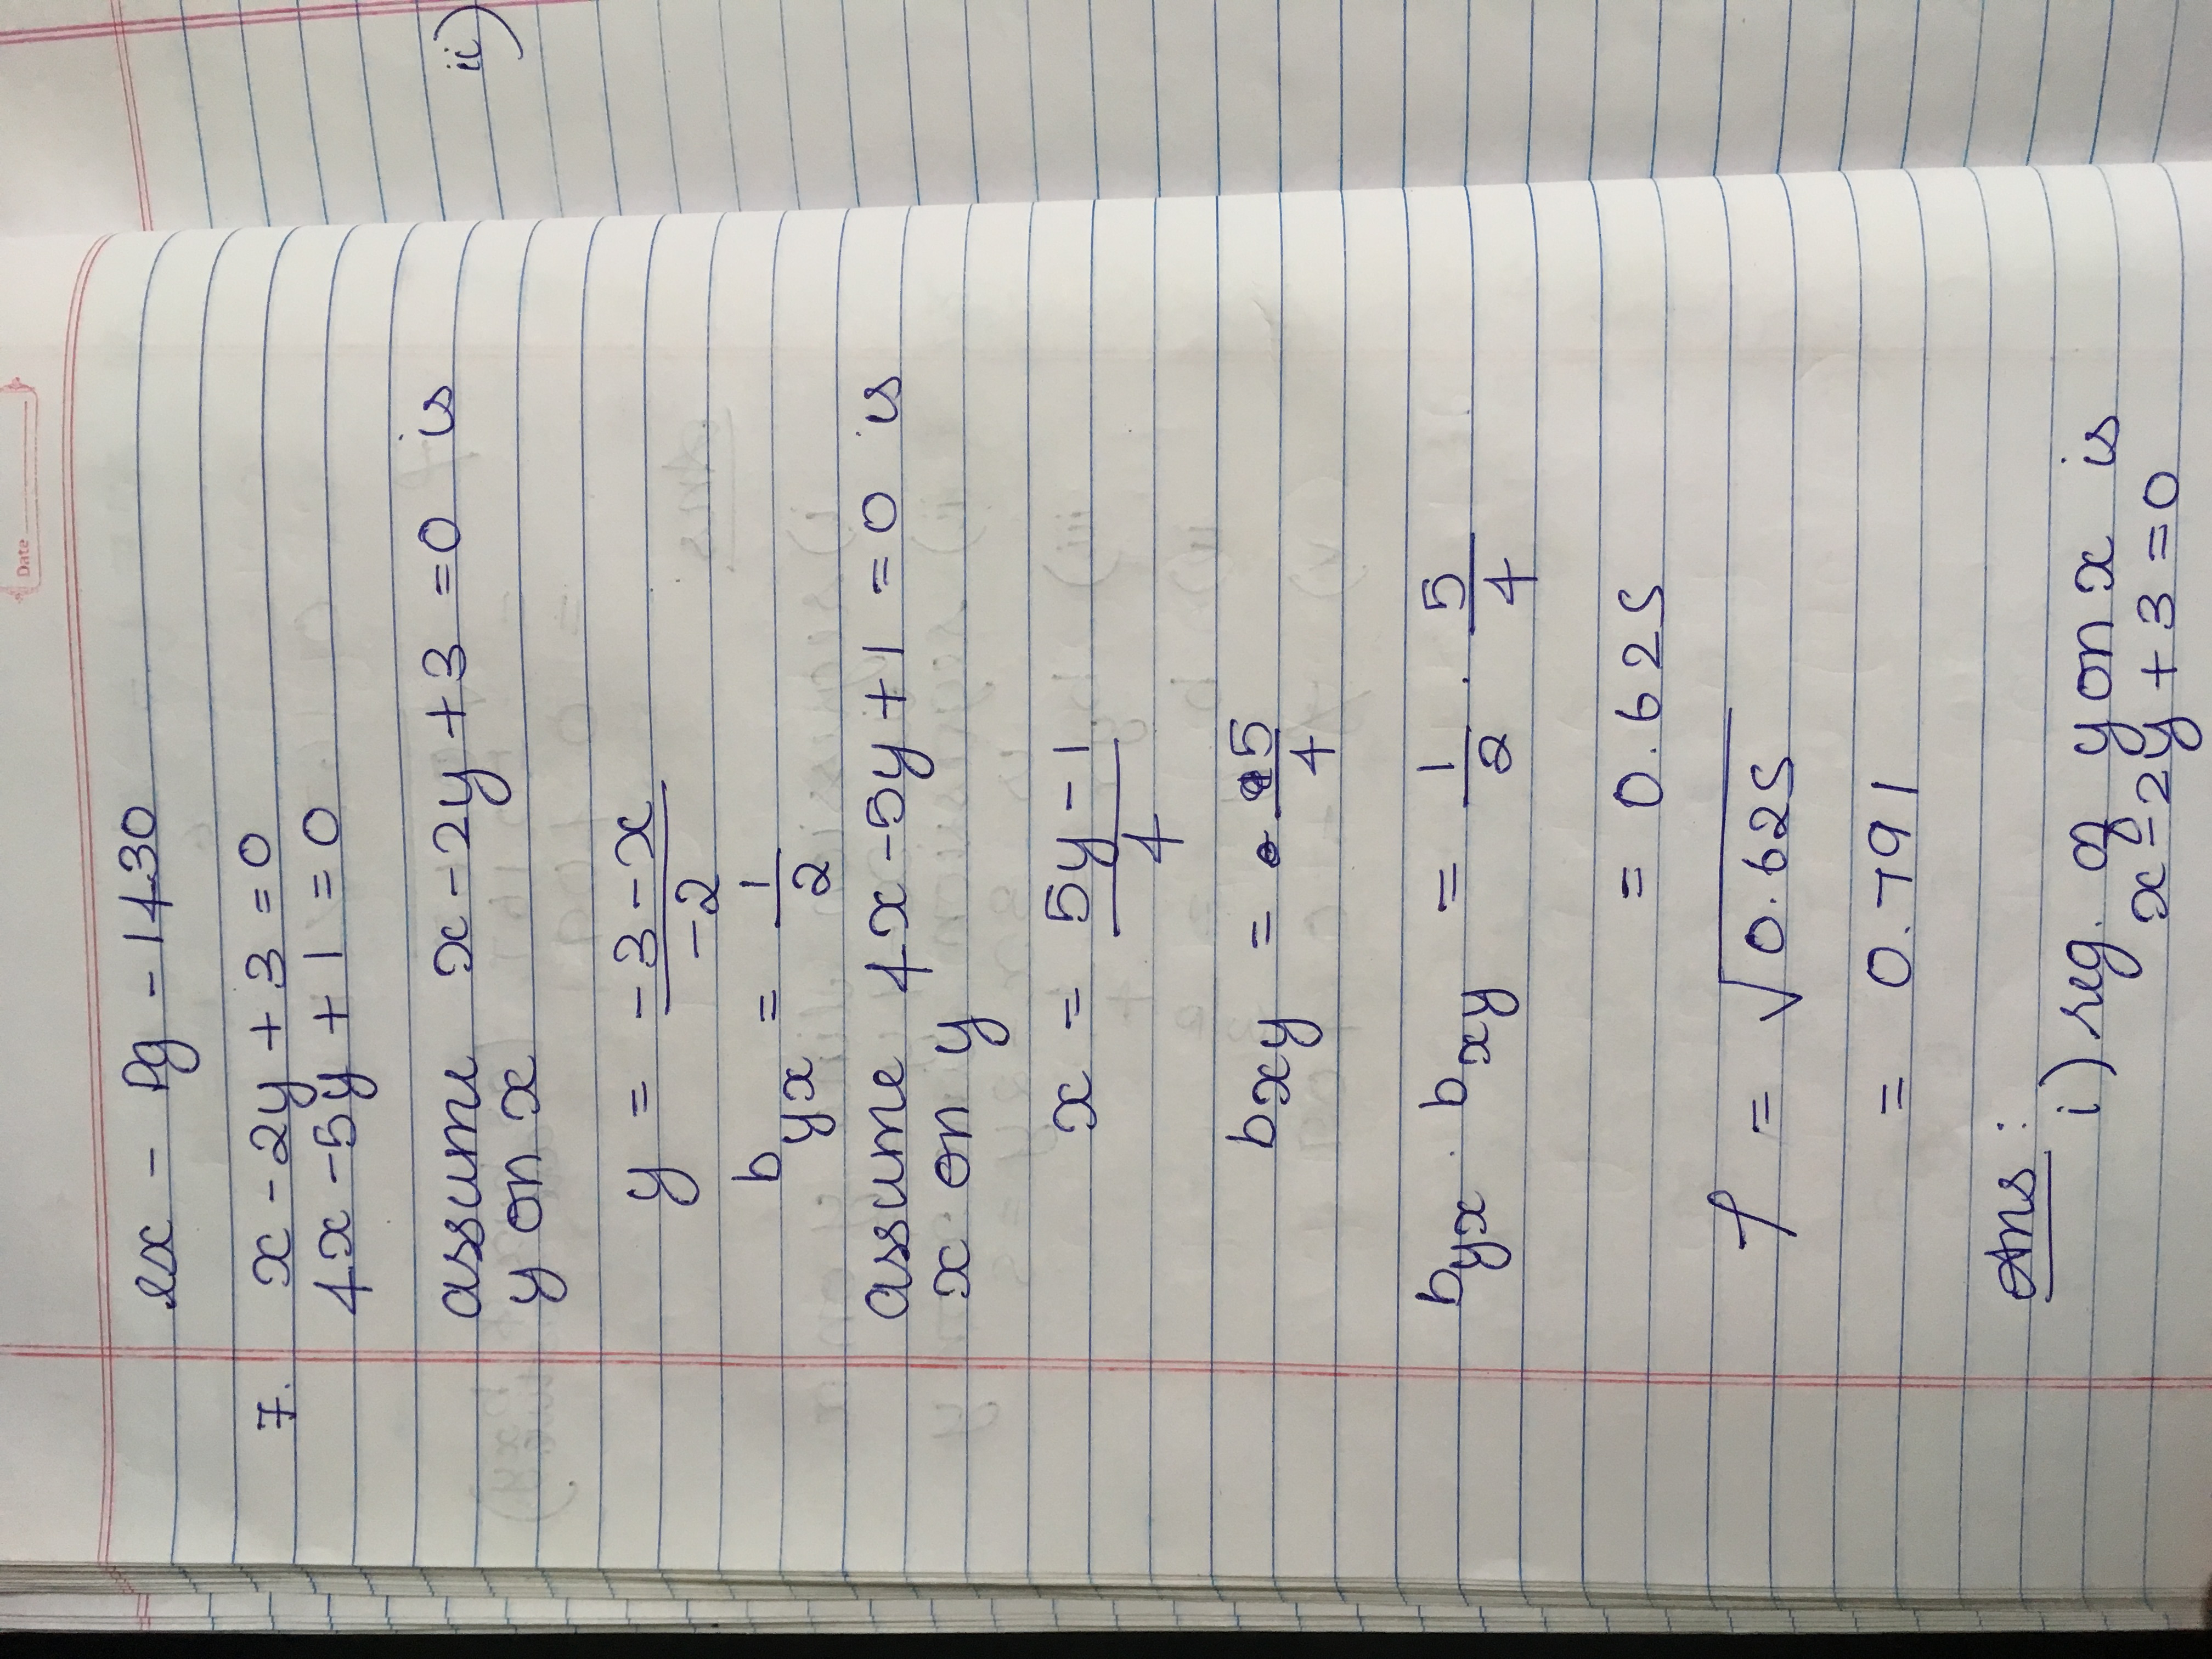 Date
ex - Pg - 1430
7. x - 2y + 3 = 0
4x - 5y + 1 = 0
assume x - 2y + 3 = 0 is
y on x
y = -3 - x / -2
b yx = 1/2
assume 4x - 5y + 1 = 0 is
x on y
x = 5y - 1 / 4
bxy = 5/4
byx . bxy = 1/2 . 5/4
= 0.625
r = √0.625
= 0.791
Ans :
i) reg. of y on x is
x - 2y + 3 = 0
ii)